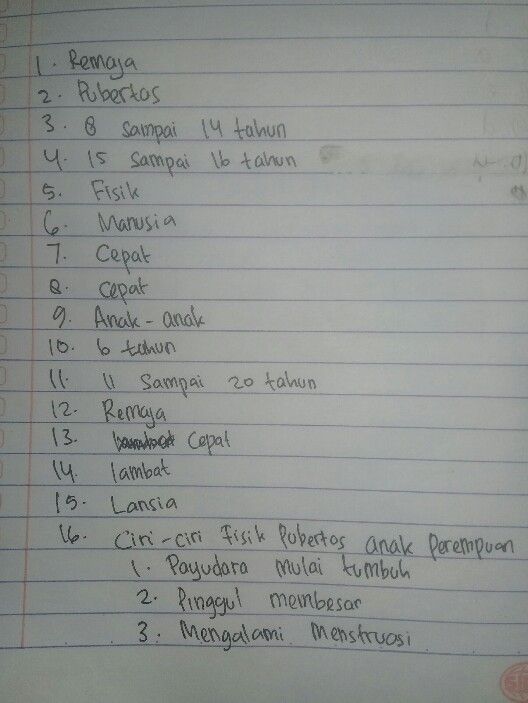 1. Remaja
2. Pubertas
3. 8 sampai 14 tahun
4. 15 sampai 16 tahun
5. Fisik
6. Manusia
7. Cepat
8. cepat
9. Anak-anak
10. 6 tahun
11. 11 sampai 20 tahun
12. Remaja
13. Cepat
14. lambat
15. Lansia
16. Ciri-ciri Fisik Pubertas anak Perempuan
1. Payudara mulai tumbuh
2. Pinggul membesar
3. Mengalami Menstruasi